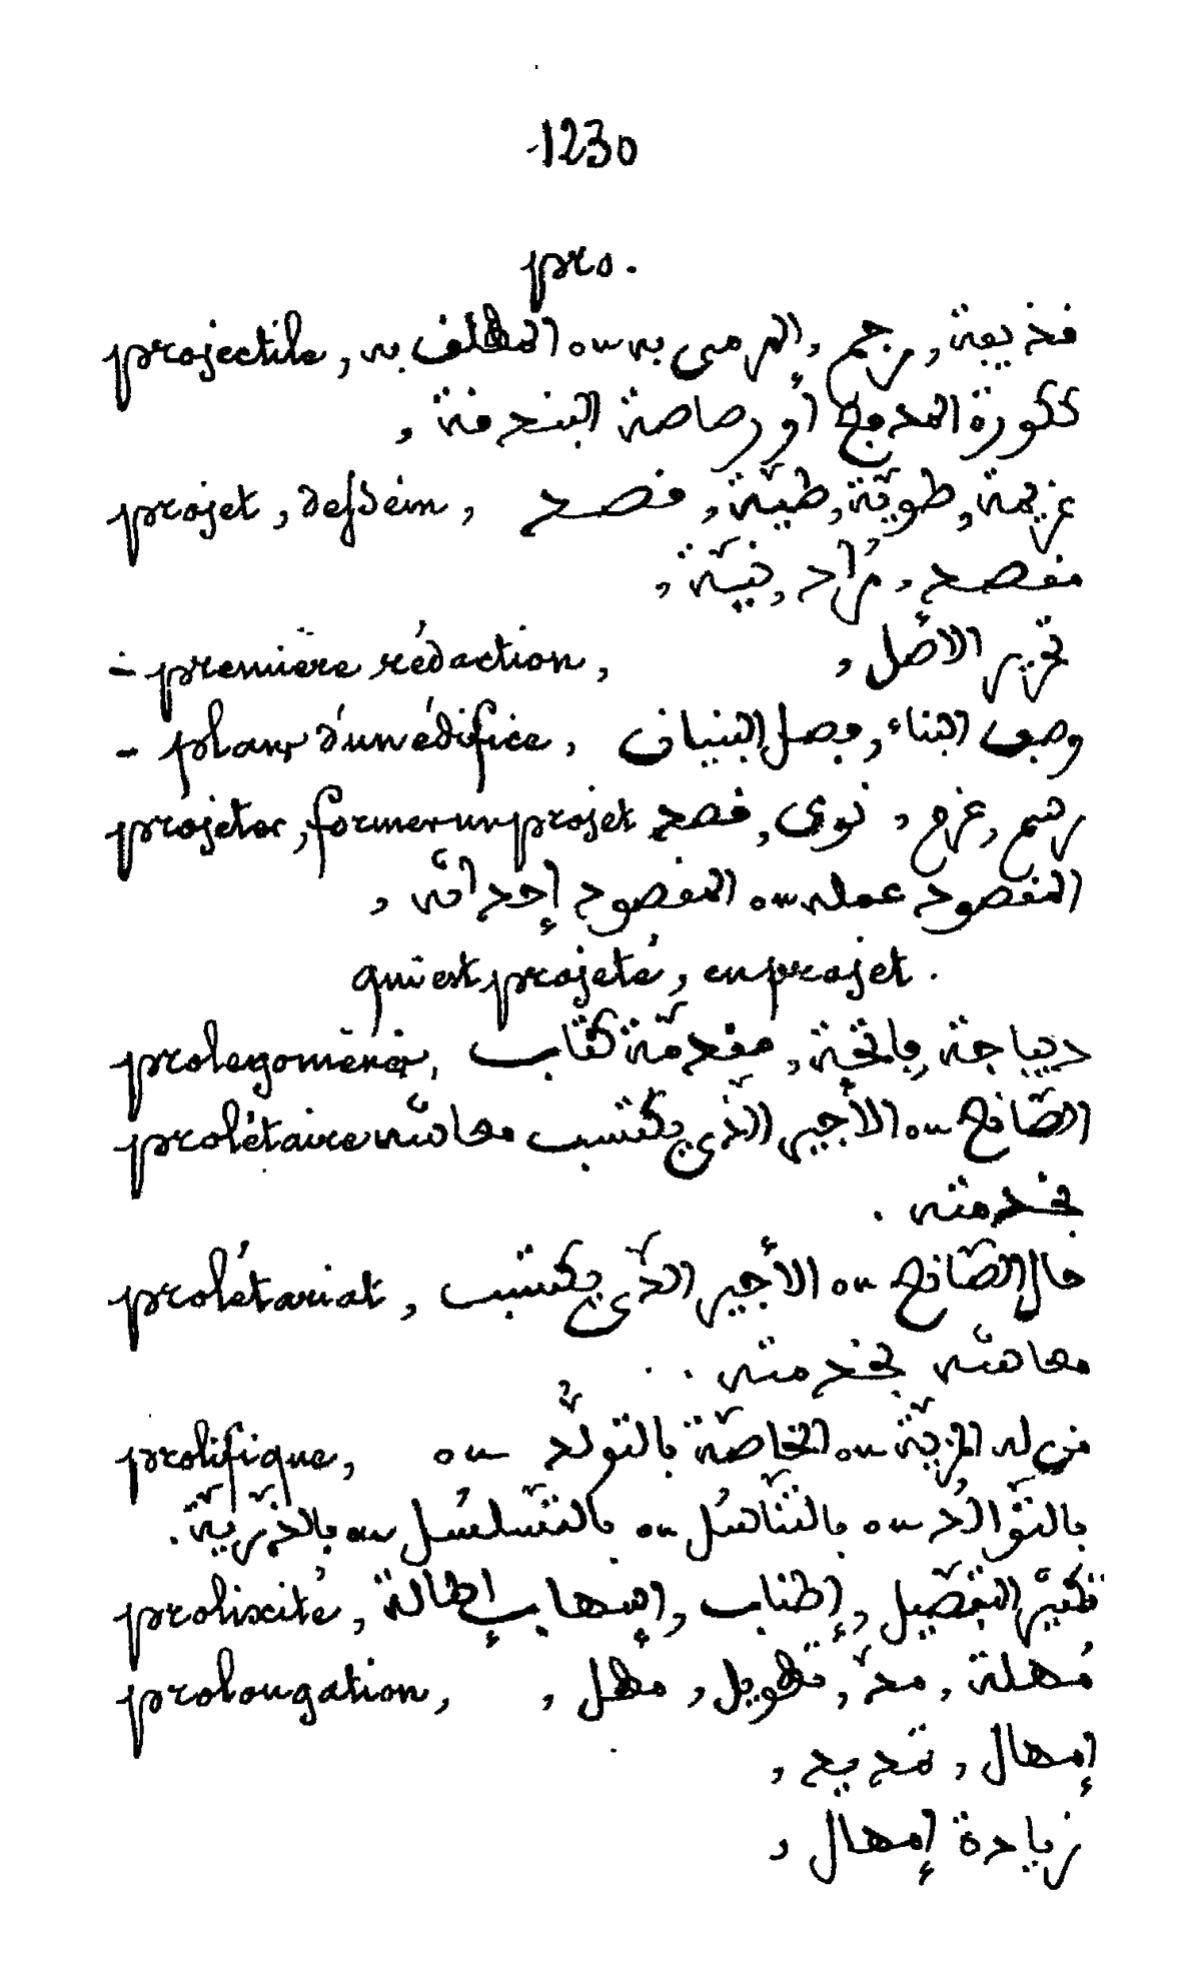 1230
pro.
projectile, قذيفة, رجم, المرمى به ou المطلق به
ككورة المدفع أو رصاصة البندقة,
projet, dessein, عزيمة, طويّة, طيّة, قصد
مقصد, مُراد, نيّة,
- première rédaction, تحرير الأصل,
- plan d'un édifice, وصف البناء, وصل البنيان
projeter, former un projet رسم, عزم, نوى, قصد
المقصود عمله ou المقصود إحداثه,
qui est projeté, en projet.
prolegomènes, ديباجة, فاتحة, مقدّمة كتاب
prolétaire الصّانع ou الأجير الذي يكتسب معاشه
بخدمته.
prolétariat, حال الصّانع ou الأجير الذّي يكتسب
معاشه بخدمته..
prolifique, من له المزيّة ou الخاصّة بالتولّد ou
بالتّوالُد ou بالتّناسُل ou بالتّسلسُل ou بالذّريّة.
prolixité, تكثير التفصيل, إطناب, إسهاب إطالة
prolongation, مُهلة, مدّ, تطويل, مهل,
إمهال, تمديد,
زيادة إمهال,